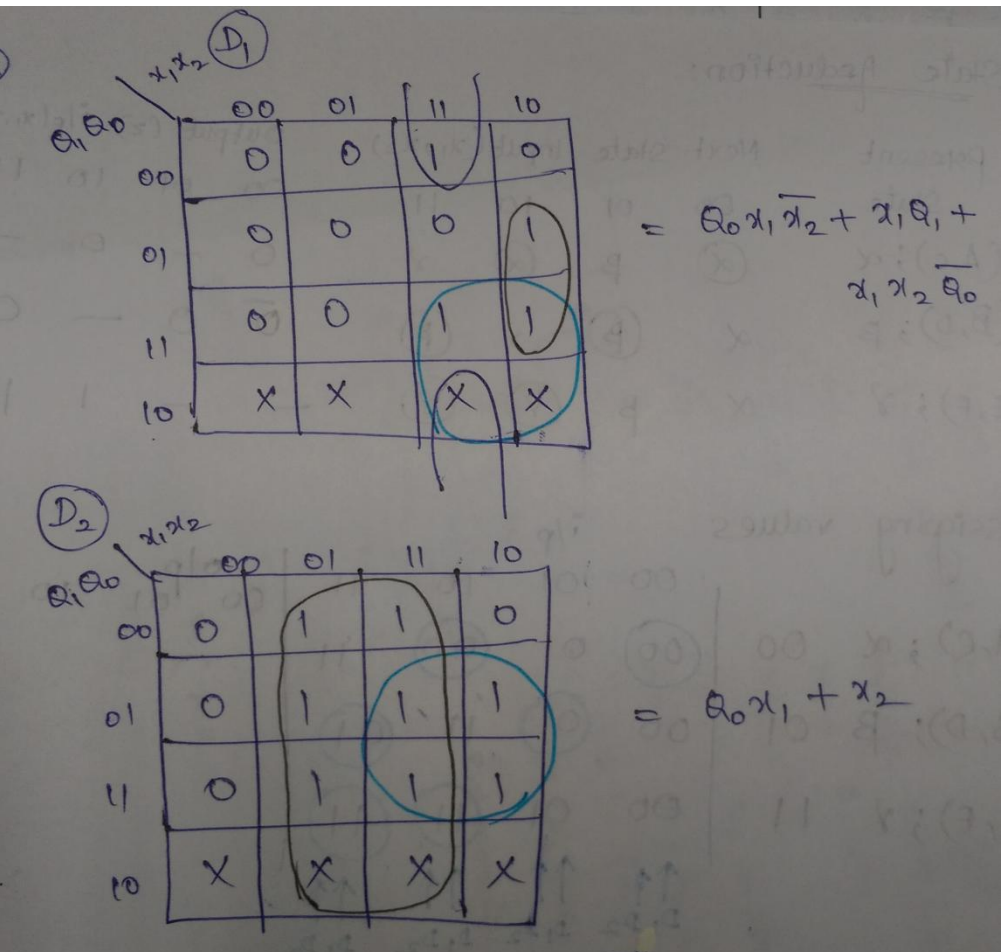 D₁
x₁x₂
00 01 11 10
Q₁Q₀
00 0 0 1 0
01 0 0 0 1
11 0 0 1 1
10 X X X X
= Q₀x₁x̅₂ + x₁Q₁ +
x₁x₂Q̅₀
D₂
x₁x₂
00 01 11 10
Q₁Q₀
00 0 1 1 0
01 0 1 1 1
11 0 1 1 1
10 X X X X
= Q₀x₁ + x₂